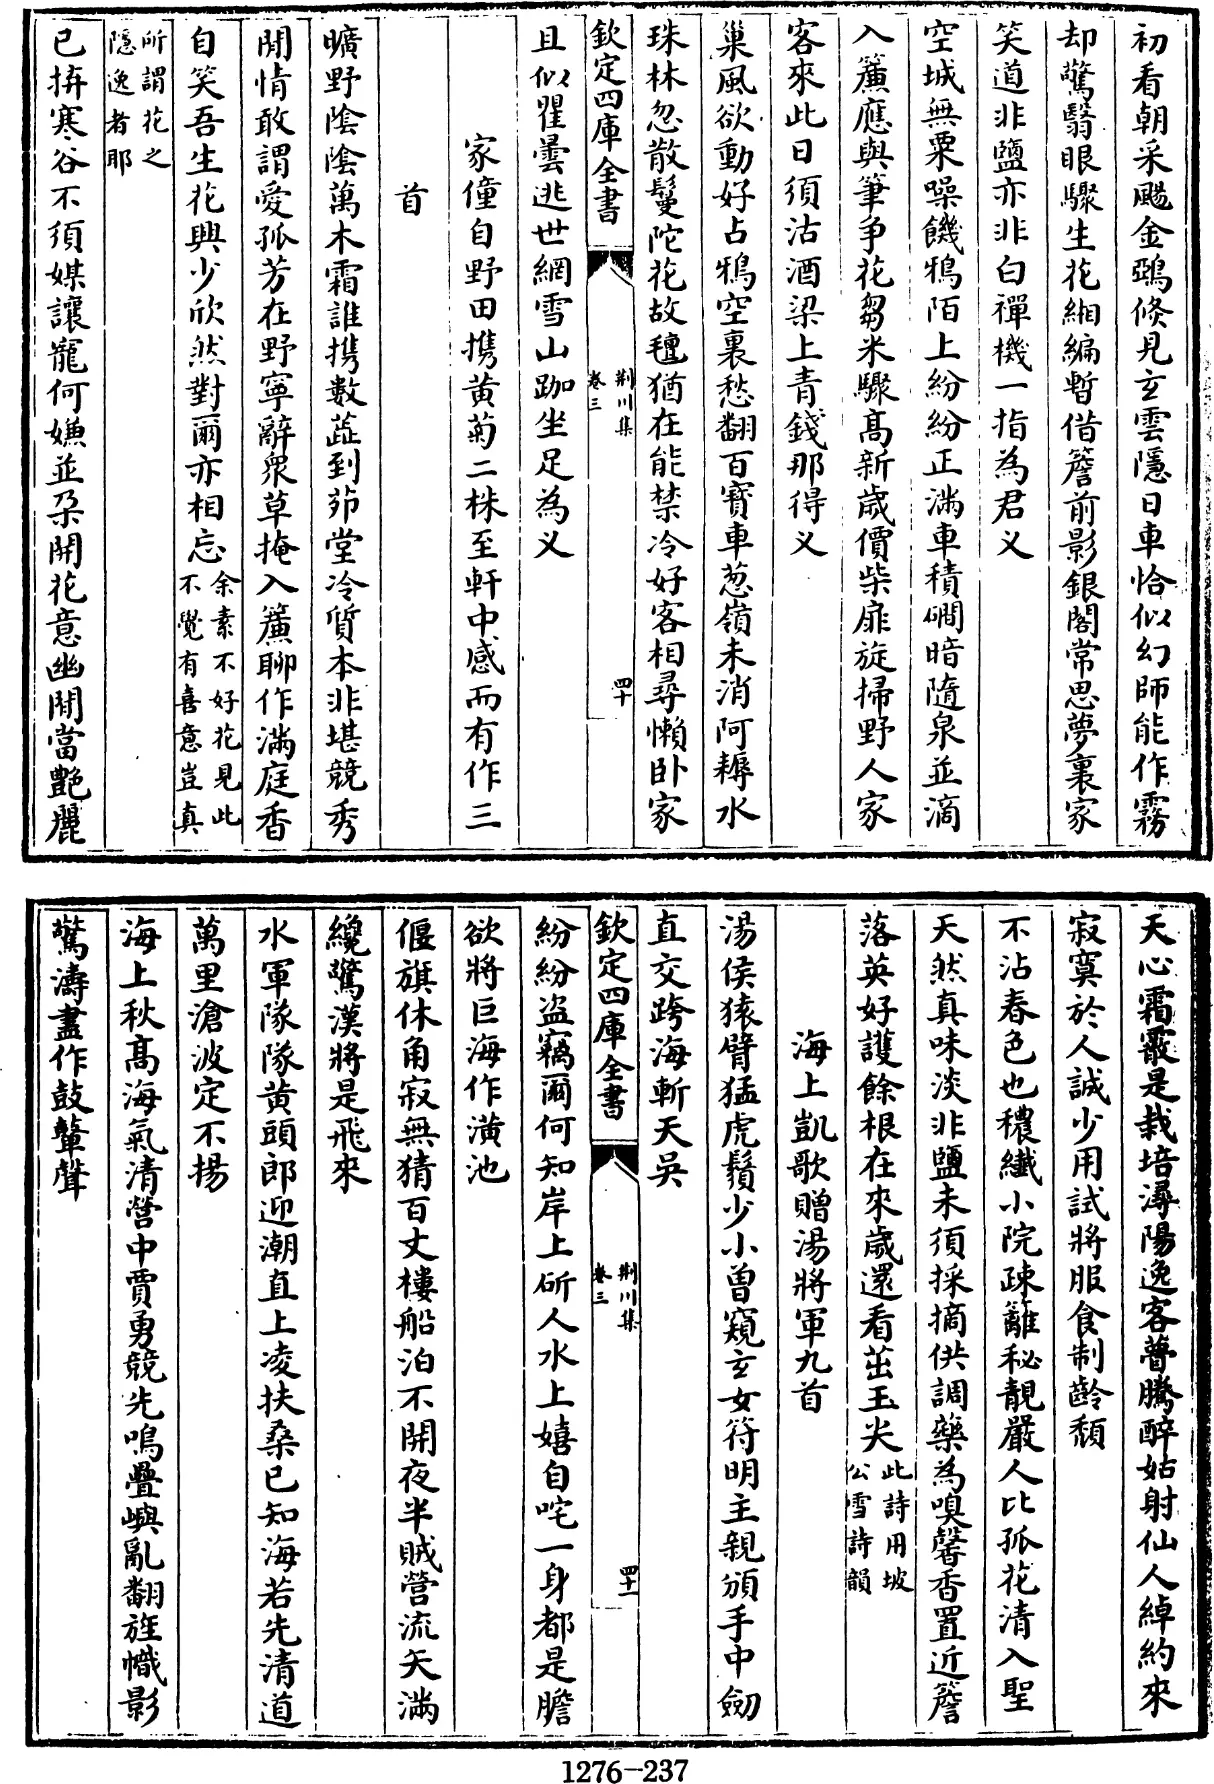 初看朝采颺金鵶倏見玄雲隱日車恰似幻師能作霧
却驚翳眼驟生花緗編暫借簷前影銀閣常思夢裏家
笑道非鹽亦非白禪機一指為君义
空城無粟噪饑鴉陌上紛紛正滿車積磵暗隨泉並滴
入簾應與筆争花芻米驟高新歲價柴扉旋掃野人家
客來此日須沽酒梁上青錢那得义
巢風欲動好占鴉空裏愁翻百寳車葱嶺未消阿耨水
珠林忽散鬘陀花故氊猶在能禁冷好客相尋懶卧家
欽定四庫全書
荆川集
卷三
四十
且似瞿曇逃世網雪山跏坐足為义
家僮自野田携黄菊二株至軒中感而有作三
首
曠野陰陰萬木霜誰携數蕋到茆堂冷質本非堪競秀
閒情敢謂愛孤芳在野寧辭衆草掩入簾聊作滿庭香
自笑吾生花興少欣然對爾亦相忘余素不好花見此
不覺有喜意豈真
所謂花之
隱逸者耶
已拚寒谷不須媒讓寵何嫌並朶開花意幽閒當艶麗
天心霜霰是栽培潯陽逸客瞢騰醉姑射仙人綽約來
寂寞於人誠少用試將服食制齡頽
不沾春色也穠纎小院疎籬秘靚嚴人比孤花清入聖
天然真味淡非鹽未須採摘供調藥為嗅馨香置近簷
落英好護餘根在來歲還看茁玉尖此詩用坡
公雪詩韻
海上凱歌贈湯將軍九首
湯侯猿臂猛虎鬚少小曽窺玄女符明主親頒手中劒
直交跨海斬天吳
欽定四庫全書
荆川集
卷三
四十一
紛紛盗竊爾何知岸上斫人水上嬉自咤一身都是膽
欲將巨海作潢池
偃旗休角寂無猜百丈樓船泊不開夜半賊營流矢滿
纔驚漢將是飛來
水軍隊隊黄頭郎迎潮直上凌扶桑已知海若先清道
萬里滄波定不揚
海上秋高海氣清營中賈勇競先鳴疊嶼亂翻旌幟影
驚濤盡作鼓鼙聲
1276-237